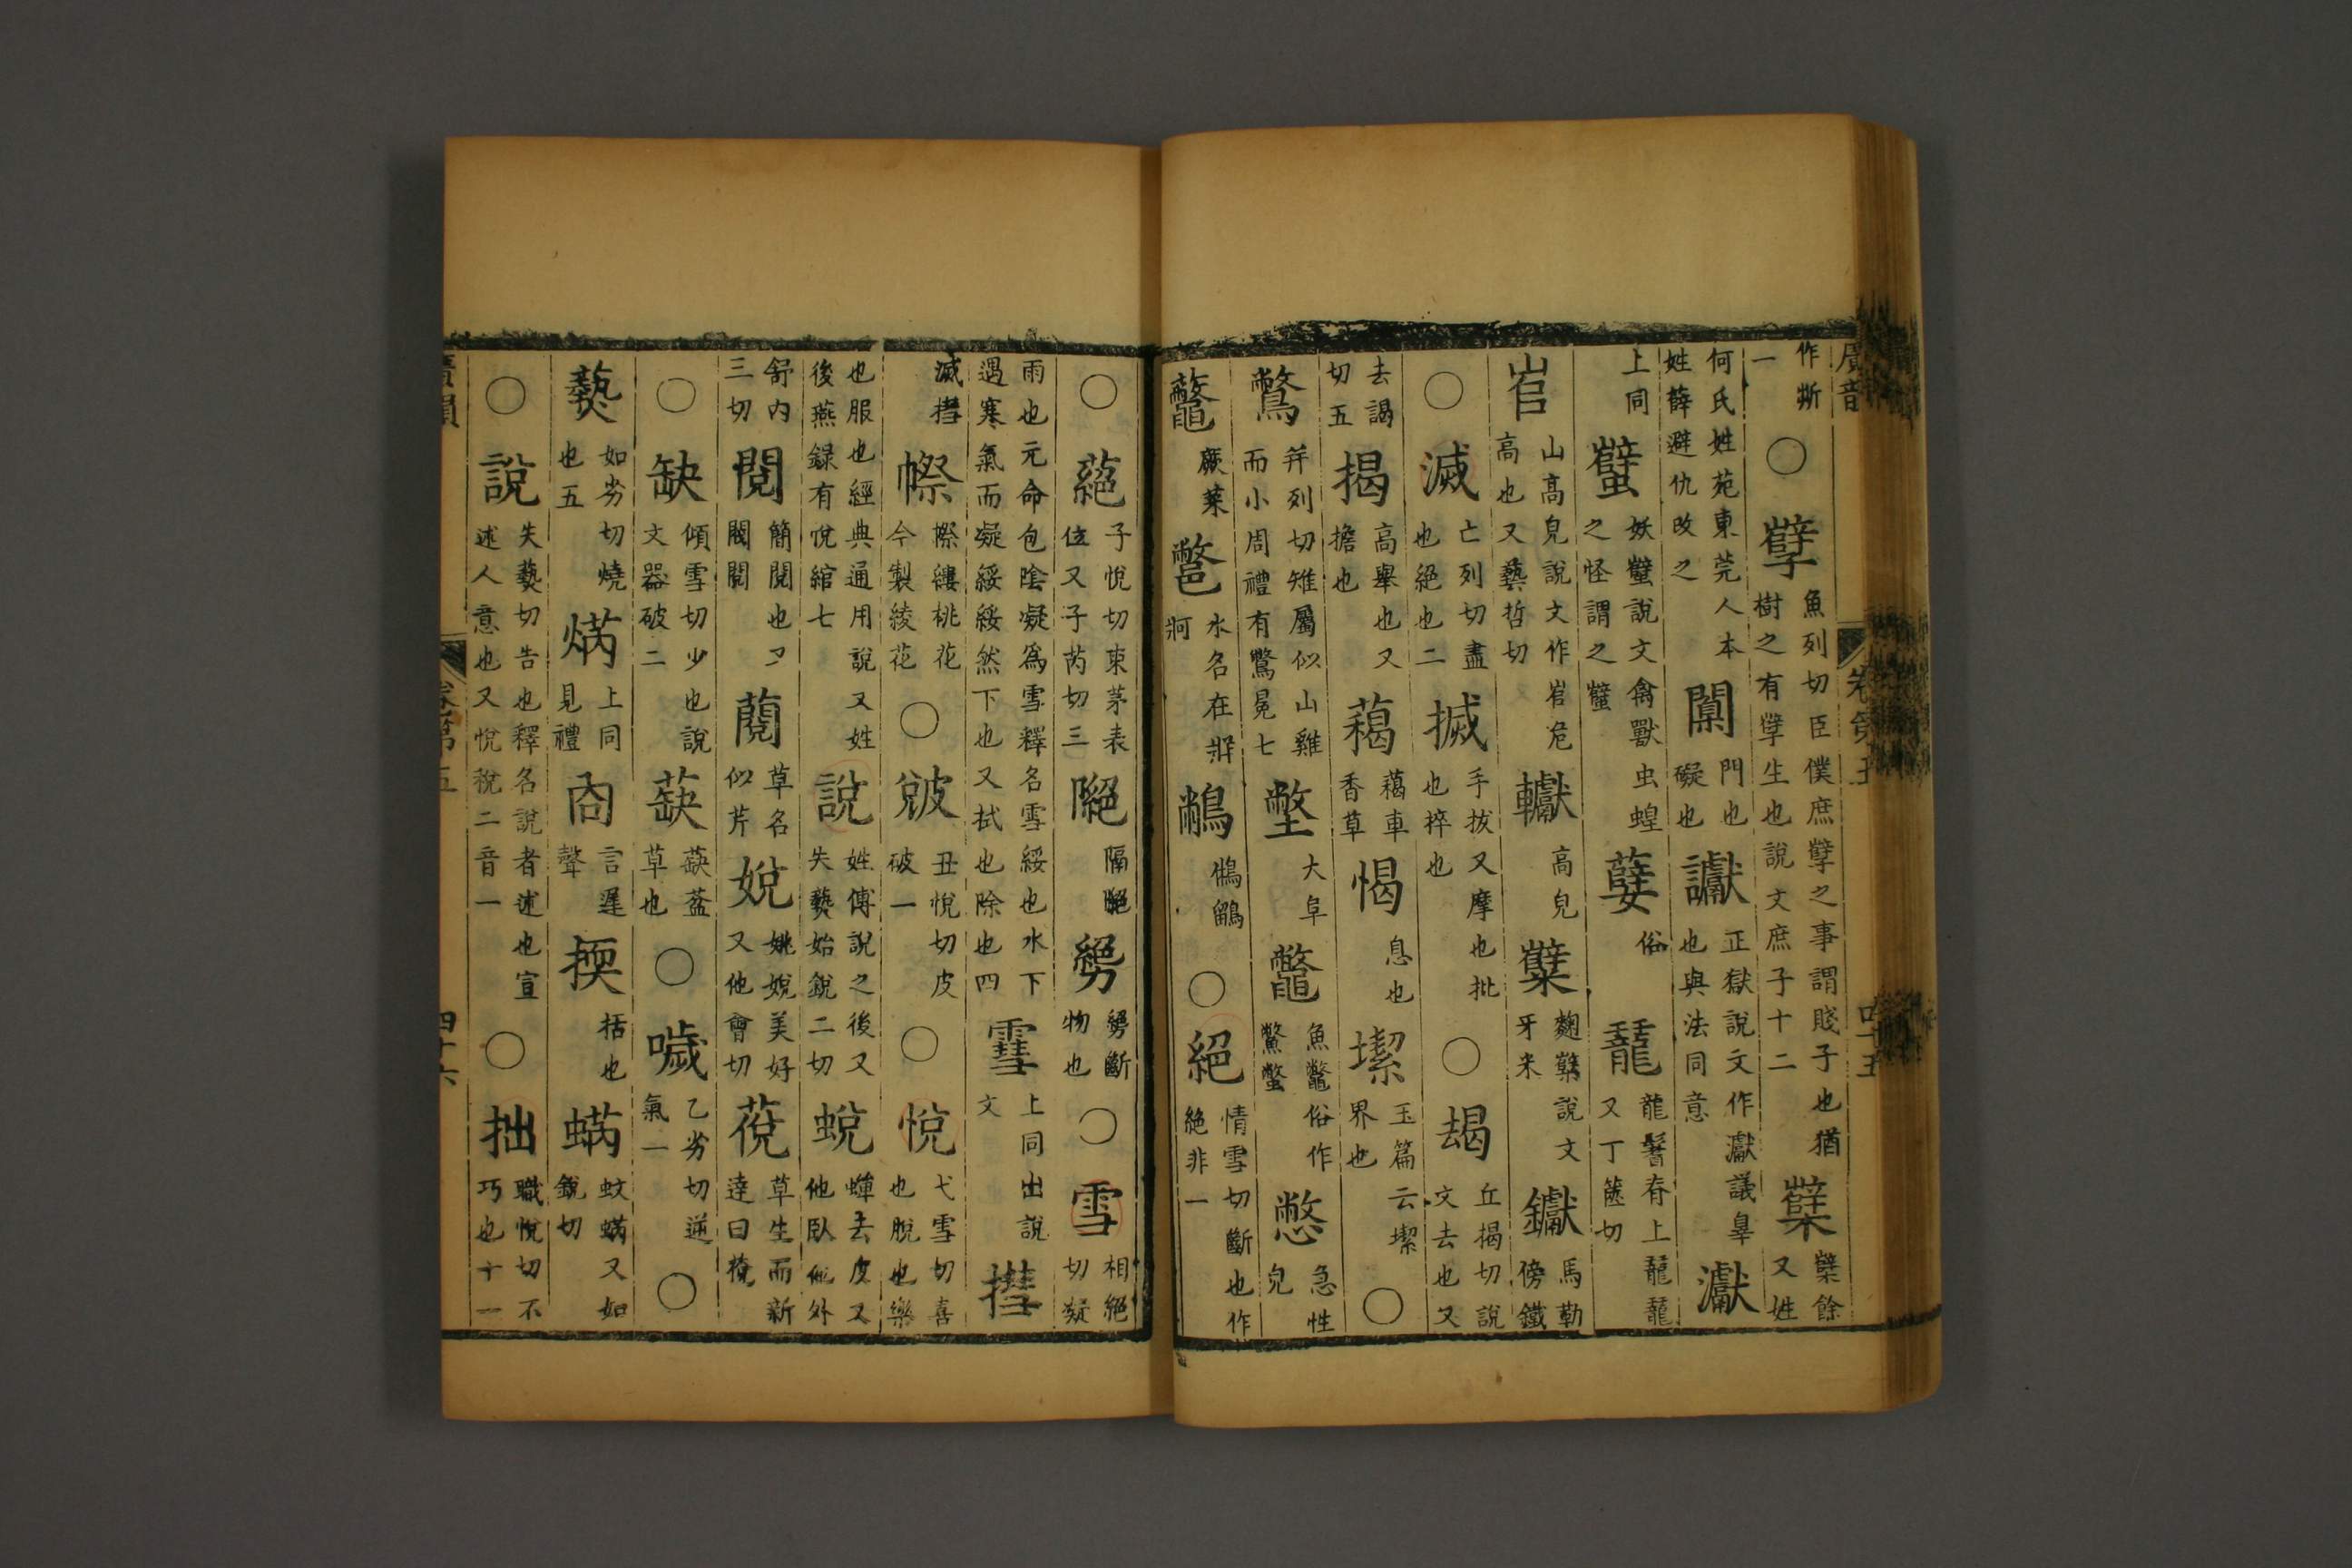 廣韻 卷第五 四十五
作撕一〇孽魚列切臣僕庶孽之事謂賤子也猶樹之有孽生也說文庶子十二蘖蘖餘又姓
何氏姓苑東莞人本姓薛避仇改之闑門也礙也讞正獄說文作瀗議辠也與法同意瀗
上同蠥妖蠥說文禽獸虫蝗之怪謂之蠥孼俗䶭龍鬐脊上䶭䶭又丁箧切
峉山高皃說文作峉危高也又藝哲切轞高皃糵麴糵說文牙米钀馬勒傍鐵
〇滅亡列切盡也絕也二搣手拔又摩也批也捽也〇朅丘揭切說文去也又
去謁切五揭高舉也又擔也藒藒車香草愒息也㙞玉篇云㙞界也〇
鷩并列切雉屬似山雞而小周禮有鷩冕七㢼大阜鼈魚鼈俗作鱉蟞憋急性皃
虌蕨菜鄨水名在牂牁鷩鷩鶹〇絕情雪切斷也作絕非一
〇蕝子悅切束茅表位又子芮切三䘒隔䘒䋢䋢斷物也〇雪相絕切凝
雨也元命包陰凝爲雪釋名雪綏也水下遇寒氣而凝綏綏然下也又拭也除也四䨮上同出說文㨹
滅㨹幯㡜縷桃花今製綾花〇㱾丑悅切皮破一〇悅弋雪切喜也脫也樂
也服也經典通用說又姓後燕錄有悅綰七說姓傅說之後又失爇始銳二切蛻蟬去皮又他臥他外
舒內三切閱簡閱也閥閱䓲草名似芹娧姚娧美好又他會切莌草生而新達曰莌
〇缺傾雪切少也說文器破二蒛蒛葐草也〇噦乙劣切逆氣一〇
爇如劣切燒也五焫上同見禮㕯言遲聲㨎捪也蜹蚊蜹又如銳切
〇說失爇切告也釋名說者述也宣述人意也又悅稅二音一〇拙職悅切不巧也十一
廣韻 卷第五 四十六